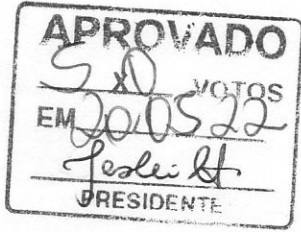 APROVADO
5 x 0 VOTOS
EM 20 05 22
PRESIDENTE